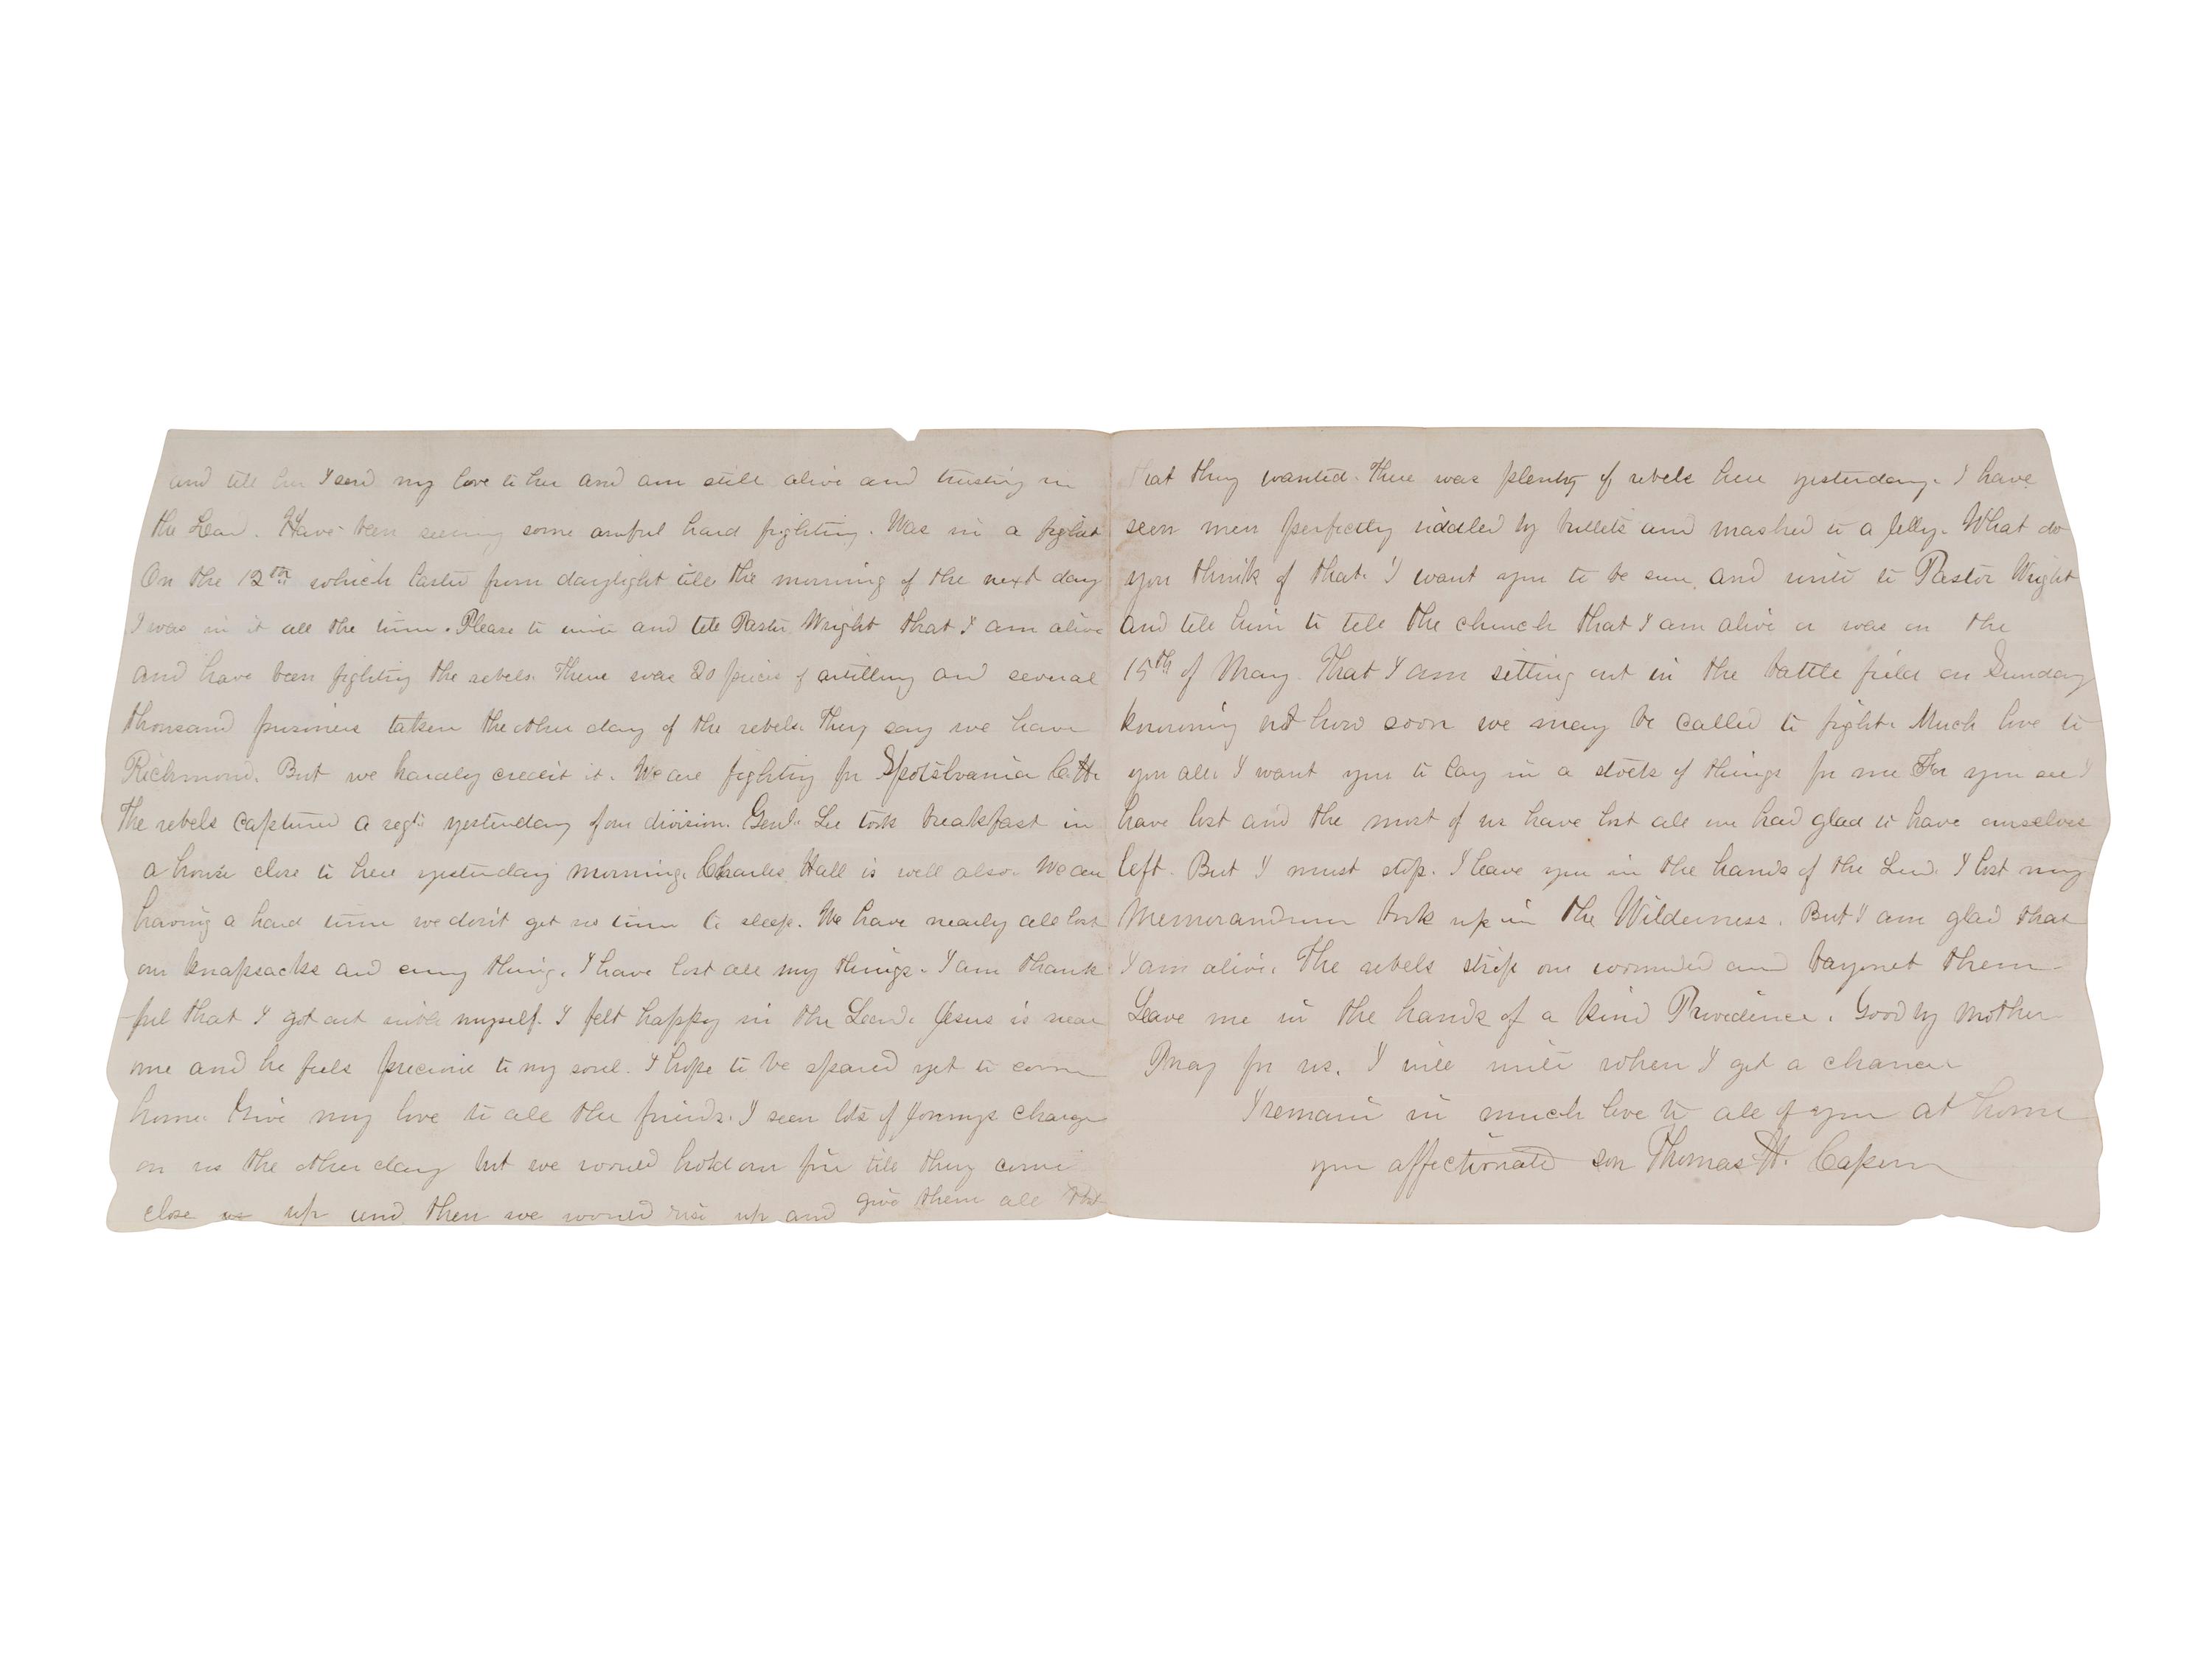 and tell her I send my love to her and am still alive and trusting in
the Lord. Have been seeing some awful hard fighting. Was in a fight
On the 12th which lasted from daylight till the morning of the next day
I was in it all the time. Please to write and tell Pastor Wright that I am alive
and have been fighting the rebels. There was 20 pieces of artillery and several
thousand prisoners taken the other day of the rebels. They say we have
Richmond. But we hardly credit it. We are fighting for Spotslvania C.H.
The rebels captured a regt. yesterday of our division. Genl. Lee took breakfast in
a house close to here yesterday morning. Charles Hall is well also. We are
having a hard time we don't get no time to sleep. We have nearly all lost
our knapsacks and every thing. I have lost all my things. I am thank
ful that I got out with myself. I felt happy in the Lord. Jesus is near
me and he feels precious to my soul. I hope to be spared yet to come
home. Give my love to all the friends. I seen lots of Jonnys charge
on us the other day but we would hold our fire till they come
close us up and then we would rise up and give them all that
that they wanted. There was plenty of rebels here yesterday. I have
seen men perfectly riddled by bullets and mashed to a Jelly. What do
you think of that. I want you to be sure and write to Pastor Wright
and tell him to tell the church that I am alive or was on the
15th of May. That I am sitting out in the battle field on Sunday
knowing not how soon we may be called to fight. Much love to
you all. I want you to lay in a stock of things for me For you see I
have lost and the most of us have lost all we had glad to have ourselves
left. But I must stop. I leave you in the hands of the Lord. I lost my
Memorandum book up in the Wilderness. But I am glad that
I am alive. The rebels strip our wounded and bayonet them
Leave me in the hands of a kind Providence. Good by Mother
Pray for us. I will write when I get a chance
I remain in much love to all of you at home
your affectionate son Thomas H. Capern